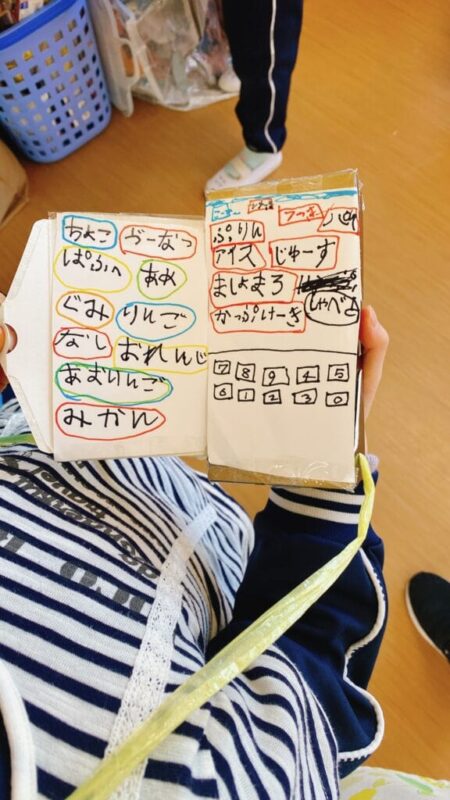 ちょこ どーなつ
ぱふへ あめ
ぐみ りんご
なし おれんじ
あおりんご
みかん
ぷりん
アイス じゅーす
ましょまろ
かっぷけーき しゃべと
7 8 9 4 5
6 1 2 3 0